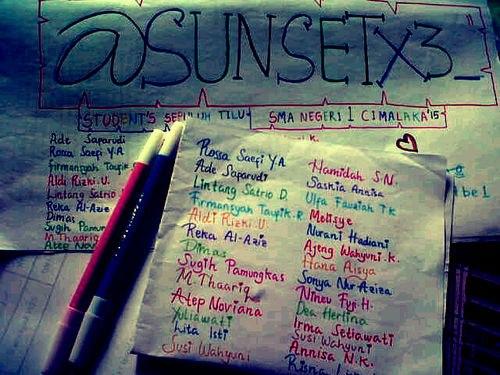 @SUNSETX3_
STUDENT'S SEPULUH TILU
SMA NEGERI 1 CIMALAKA '15
Ade Saparudi
Rossa Saefi Y.A
Firmansyah Taupik
Aldi Rizki U.
Lintang Satrio
Reka Al-Azie
Dimas
Sugih Pamung
M Thaariq
Atep Nov
Rossa Saefi Y.A
Ade Saparudi
Lintang Satrio D.
Firmansyah Taupik R.
Aldi Rizki U.
Reka Al-Azie
Dimas
Sugih Pamungkas
M Thaariq
Atep Noviana
Yuliawati
Lita Isti
Susi Wahyuni
Hamidah S.N.
Saskia Annisa
Ulfa Fauziah T.K
Melisye
Nurani Hadiani
Ajeng Wahyuni K.
Hana Aisya
Sonya Nur Aziza
Nineu Fuji H.
Dea Herlina
Irma Setiawati
Susi Wahyuni
Annisa N.K.